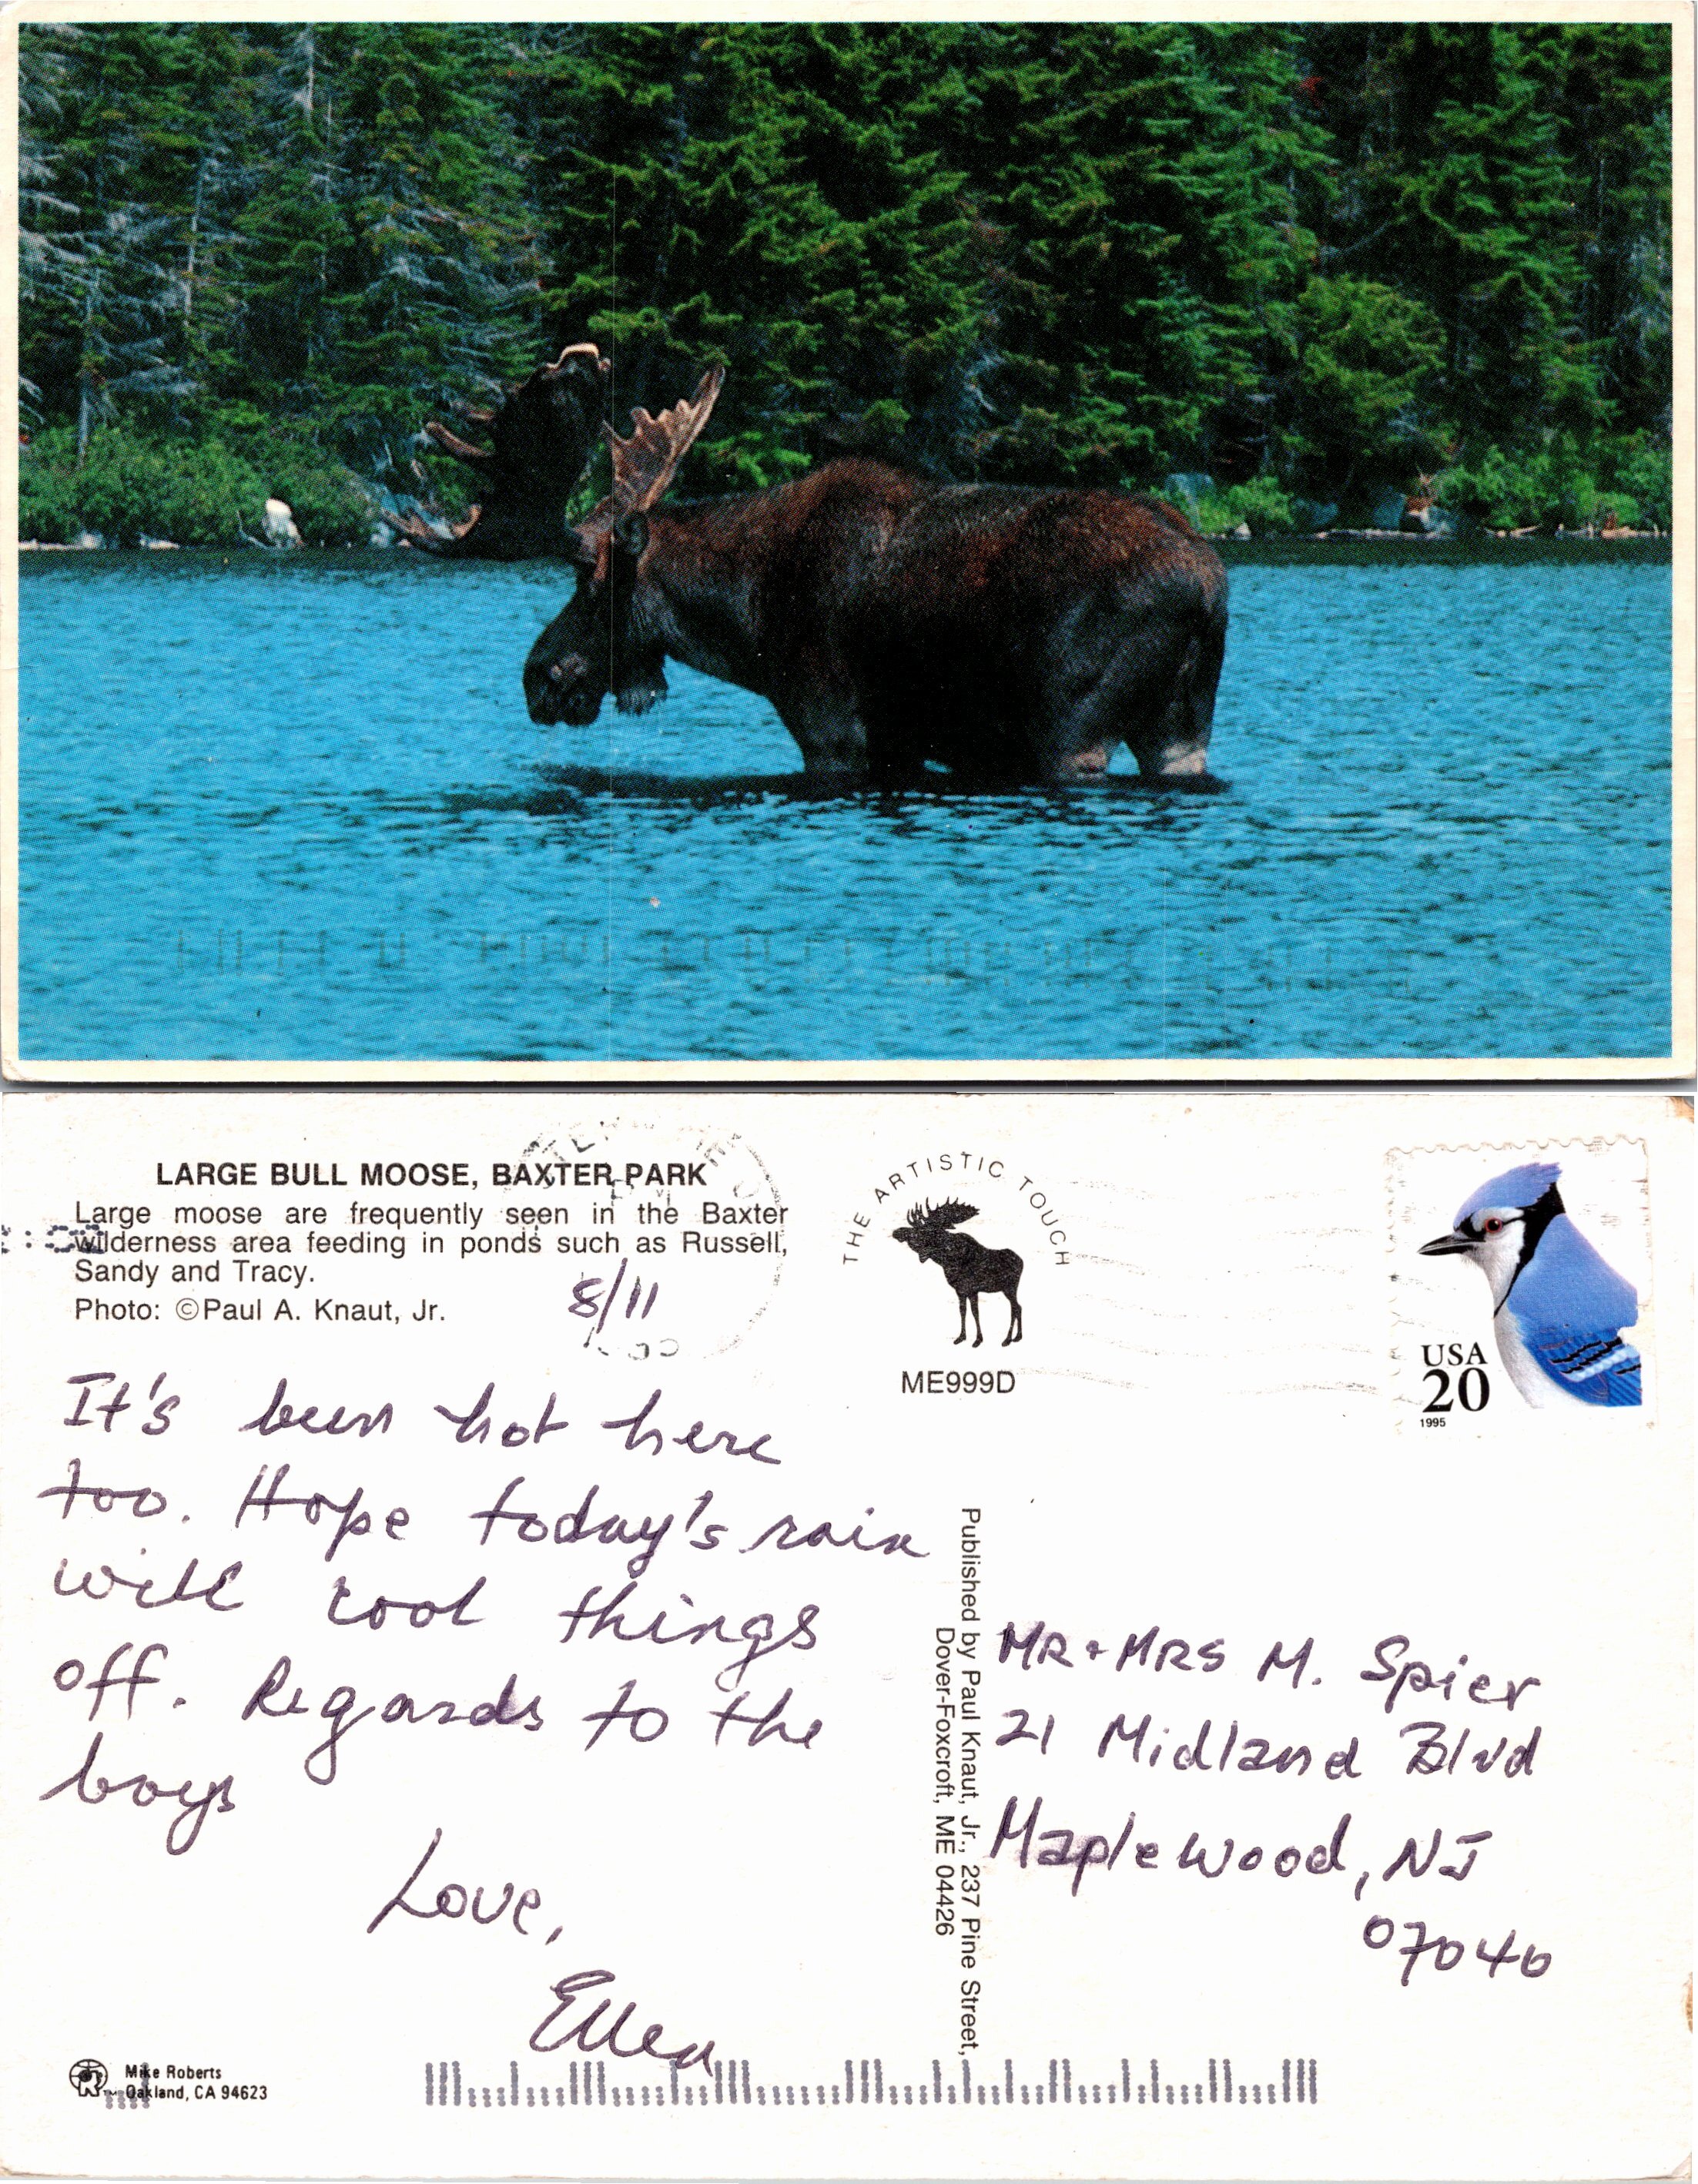 LARGE BULL MOOSE, BAXTER PARK
Large moose are frequently seen in the Baxter
wilderness area feeding in ponds such as Russell,
Sandy and Tracy.
Photo: ©Paul A. Knaut, Jr.
8/11
THE ARTISTIC TOUCH
ME999D
USA
20
1995
It's been hot here
too. Hope today's rain
will cool things
off. Regards to the
boys
Love,
Ellen
Published by Paul Knaut, Jr., 237 Pine Street,
Dover-Foxcroft, ME 04426
MR + MRS M. Spier
21 Midland Blvd
Maplewood, NJ
07040
Mike Roberts
Oakland, CA 94623